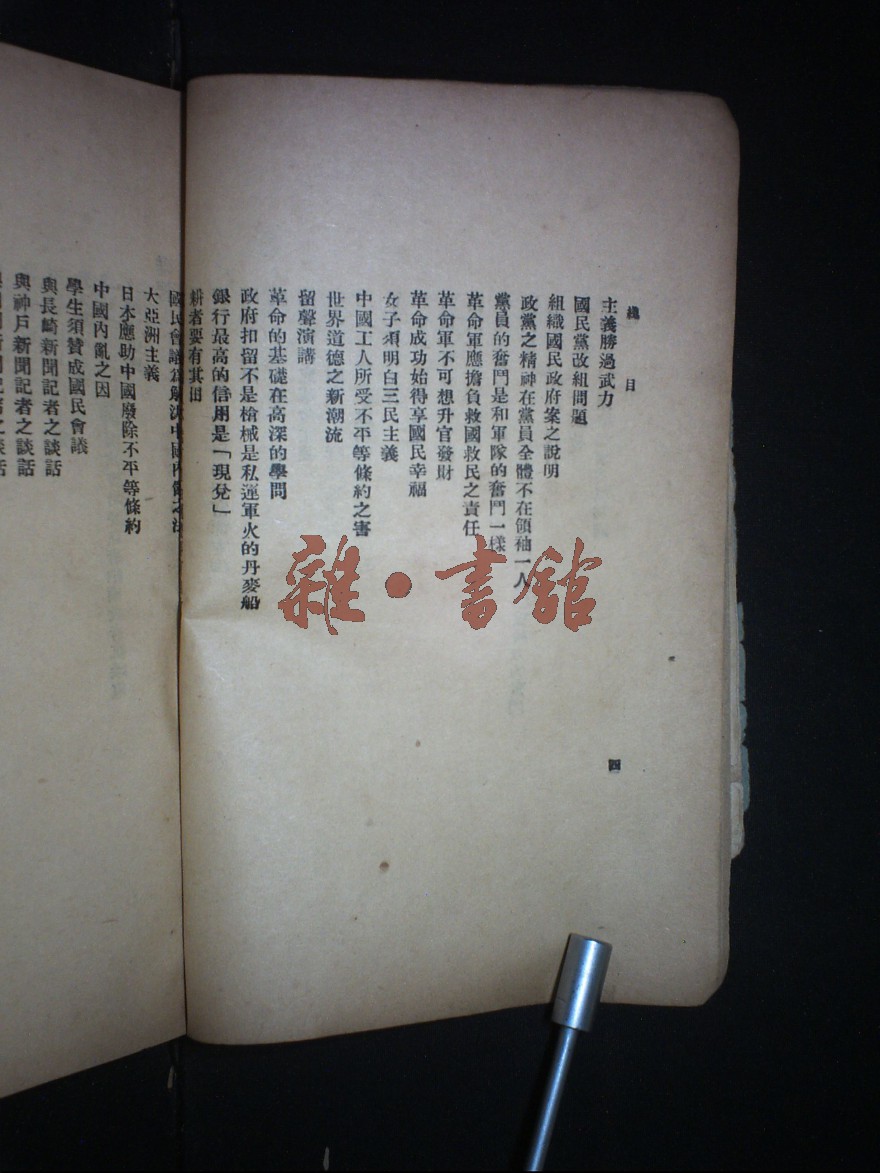 總目
主義勝過武力
國民黨改組問題
組織國民政府案之說明
政黨之精神在黨員全體不在領袖一人
黨員的奮鬥是和軍隊的奮鬥一樣
革命軍應擔負救國救民之責任
革命軍不可想升官發財
革命成功始得享國民幸福
女子須明白三民主義
中國工人所受不平等條約之害
世界道德之新潮流
留聲演講
革命的基礎在高深的學問
政府扣留不是槍械是私運軍火的丹麥船
銀行最高的信用是「現兌」
耕者要有其田
國民會議爲解決中國內亂之法
大亞洲主義
日本應助中國廢除不平等條約
中國內亂之因
學生須贊成國民會議
與長崎新聞記者之談話
與神戶新聞記者之談話
新聞記者之談話
四
雜·書館